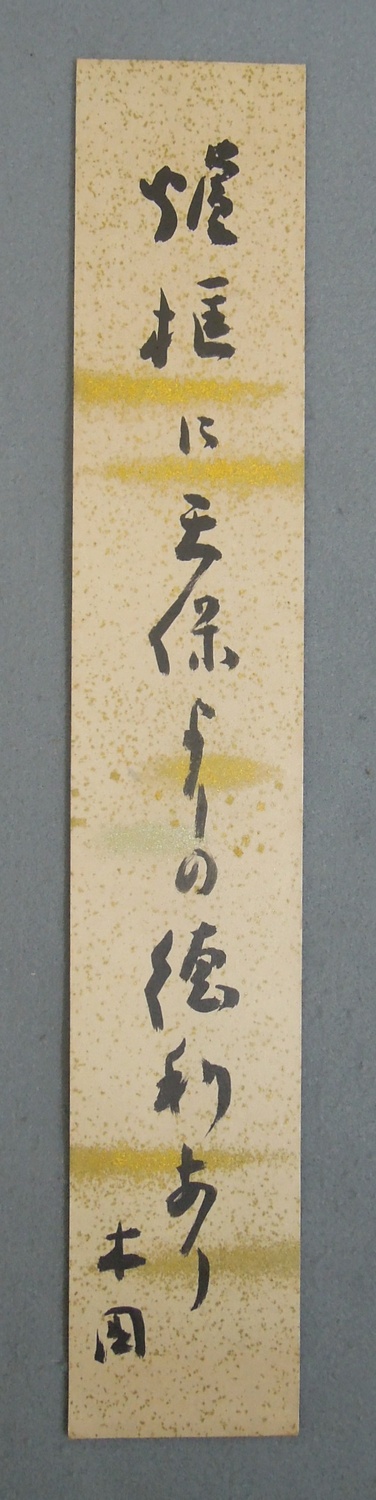 爐框に天保よりの徳利あり
木国